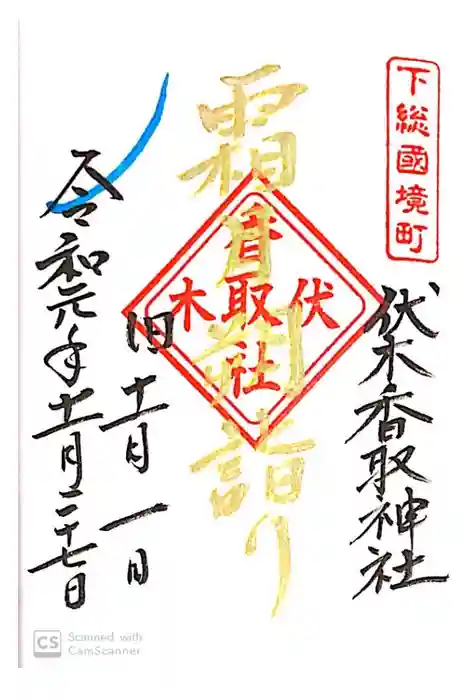 下総國境町
伏木香取神社
霜月朔詣り
伏
香取社
木
旧十一月一日
令和元年十一月二十七日
CS Scanned with
CamScanner